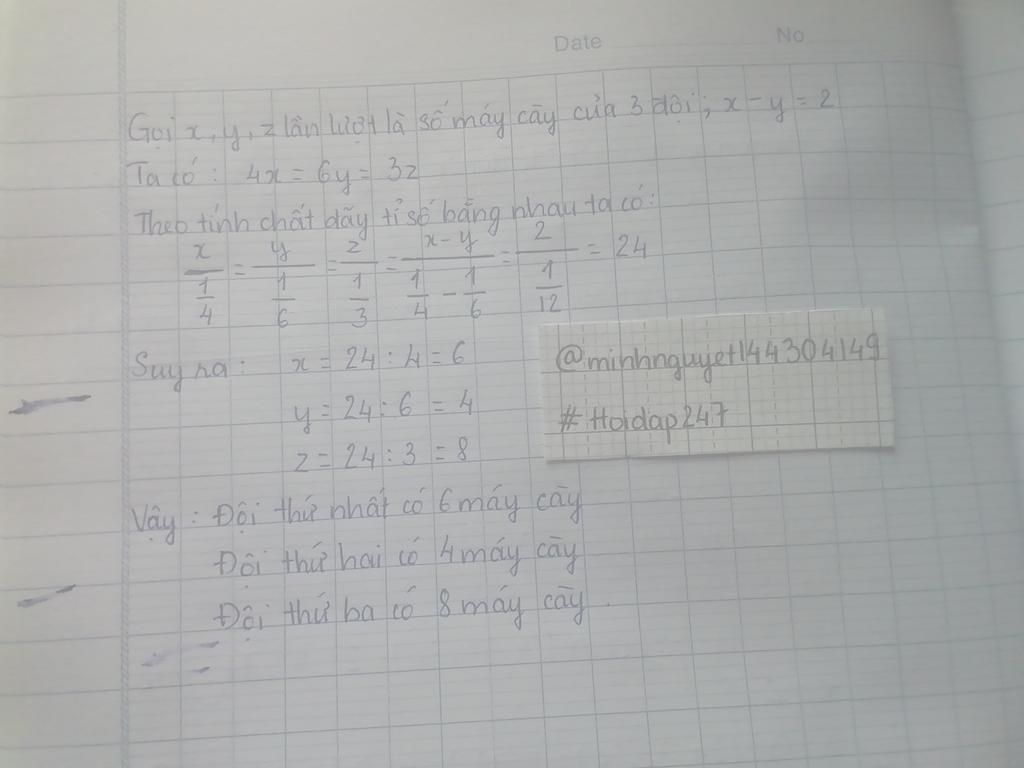 Date No
Gọi x, y, z lần lượt là số máy cày của 3 đội; x - y = 2
Ta có: 4x = 6y = 3z
Theo tính chất dãy tỉ số bằng nhau ta có:
x/(1/4) = y/(1/6) = z/(1/3) = (x - y)/(1/4 - 1/6) = 2/(1/12) = 24
Suy ra: x = 24 : 4 = 6
y = 24 : 6 = 4
z = 24 : 3 = 8
@minhnguyet144304149
# Hoidap247
Vậy: Đội thứ nhất có 6 máy cày
Đội thứ hai có 4 máy cày
Đội thứ ba có 8 máy cày.